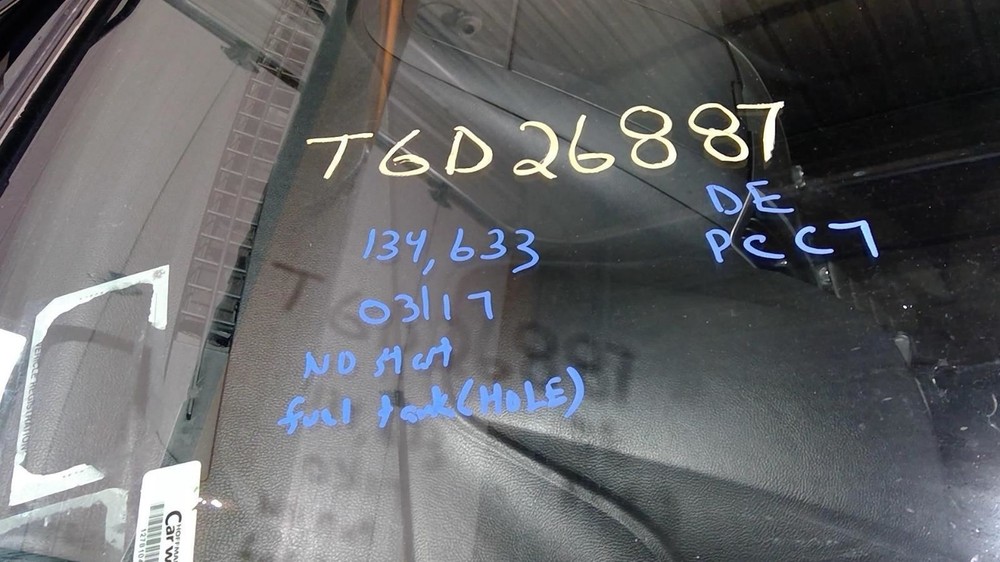 TGD26887
DE
PCC7
134,633
03/17
NO start
fuel tank (HOLE)
HOFFMA
Car w